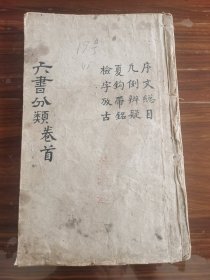 序文總目
凡例辨疑
夏鈎帶銘
檢字放古
六書分類卷首